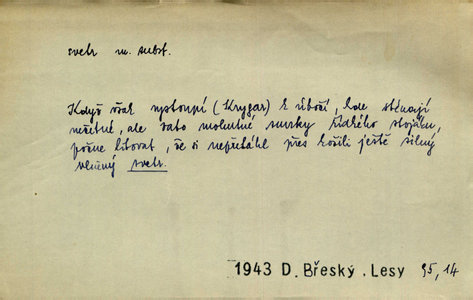 svetr m. subst.
Když však vystoupí (Krygar) k úbočí, kde sténají
nečetné, ale zato mohutné smrky řídkého stojáku,
počne litovat, že si nepřetáhl přes košili ještě silný
vlněný svetr.
1943 D. Břeský. Lesy 95,14